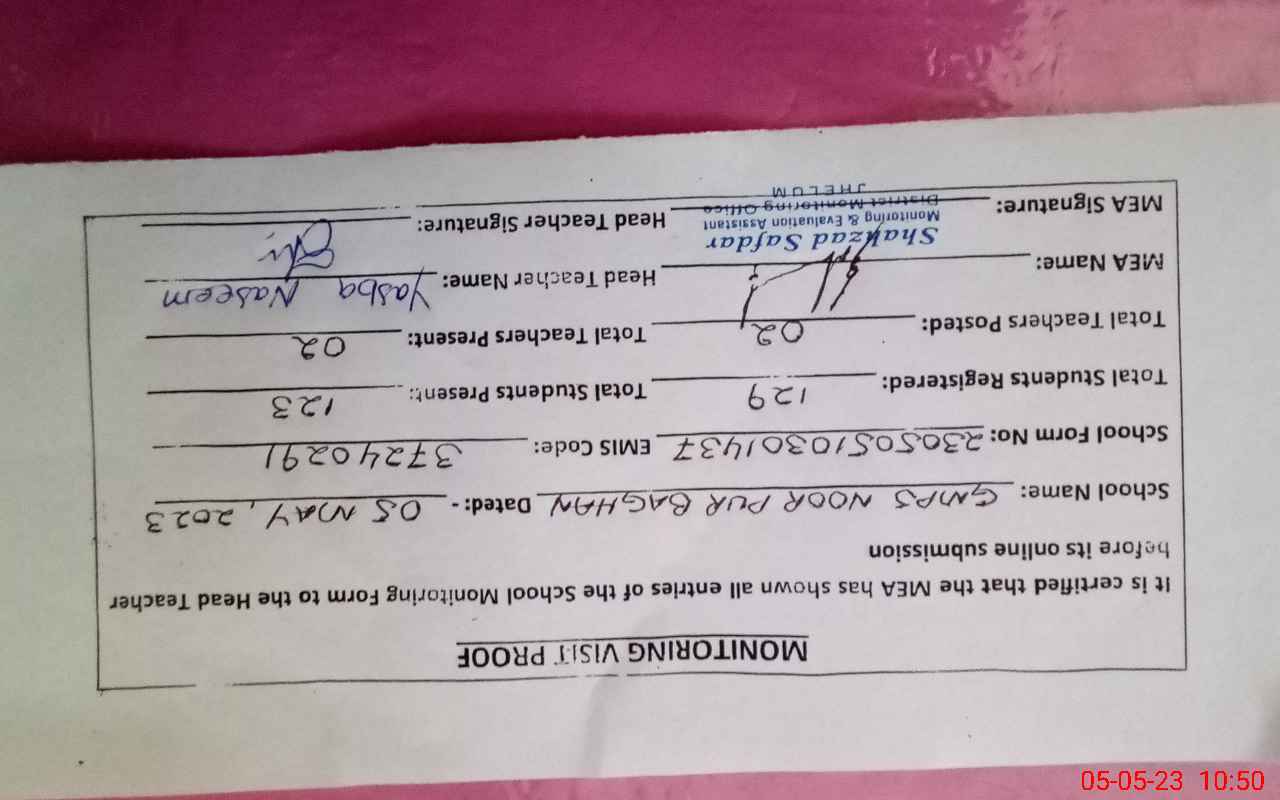 MONITORING VISIT PROOF
It is certified that the MEA has shown all entries of the School Monitoring Form to the Head Teacher
before its online submission
School Name: GMPS NOOR PUR BAGHAN Dated:- 05 MAY, 2023
School Form No: 23050510301437 EMIS Code: 37240291
Total Students Registered: 129 Total Students Present: 123
Total Teachers Posted: 02 Total Teachers Present: 02
MEA Name: Head Teacher Name: Yasba Naseem
Shahzad Safdar
Monitoring & Evaluation Assistant
MEA Signature: Head Teacher Signature:
District Monitoring Office
JHELUM
05-05-23 10:50